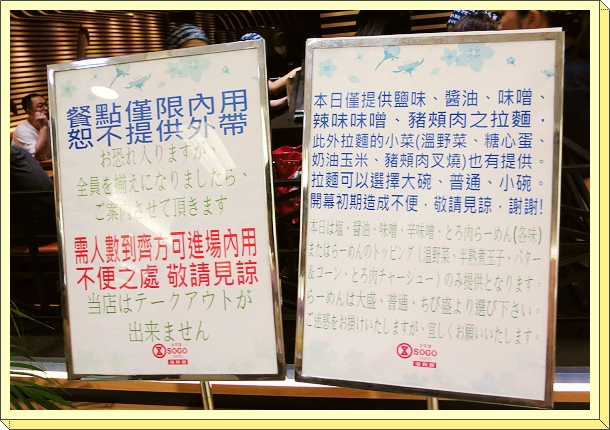 餐點僅限內用
恕不提供外帶
お恐れ入りますが、
全員を揃えになりましたら、
ご案内させて頂きます
需人數到齊方可進場內用
不便之處 敬請見諒
当店はテークアウトが
出来ません
SOGO
本日僅提供鹽味、醬油、味噌、
辣味味噌、豬頰肉之拉麵，
此外拉麵的小菜(溫野菜、糖心蛋、
奶油玉米、豬頰肉叉燒)也有提供。
拉麵可以選擇大碗、普通、小碗。
開幕初期造成不便，敬請見諒，謝謝!
本日は塩、醤油、味噌、辛味噌、とろ肉らーめん(各味)
またはらーめんのトッピング（温野菜、半熟煮玉子、バター
&コーン、とろ肉チャーシュー）のみ提供となります。
らーめんは大盛、普通、ちび盛より選び下さい。
ご迷惑をお掛けいたしますが、宜しくお願いいたします。
SOGO